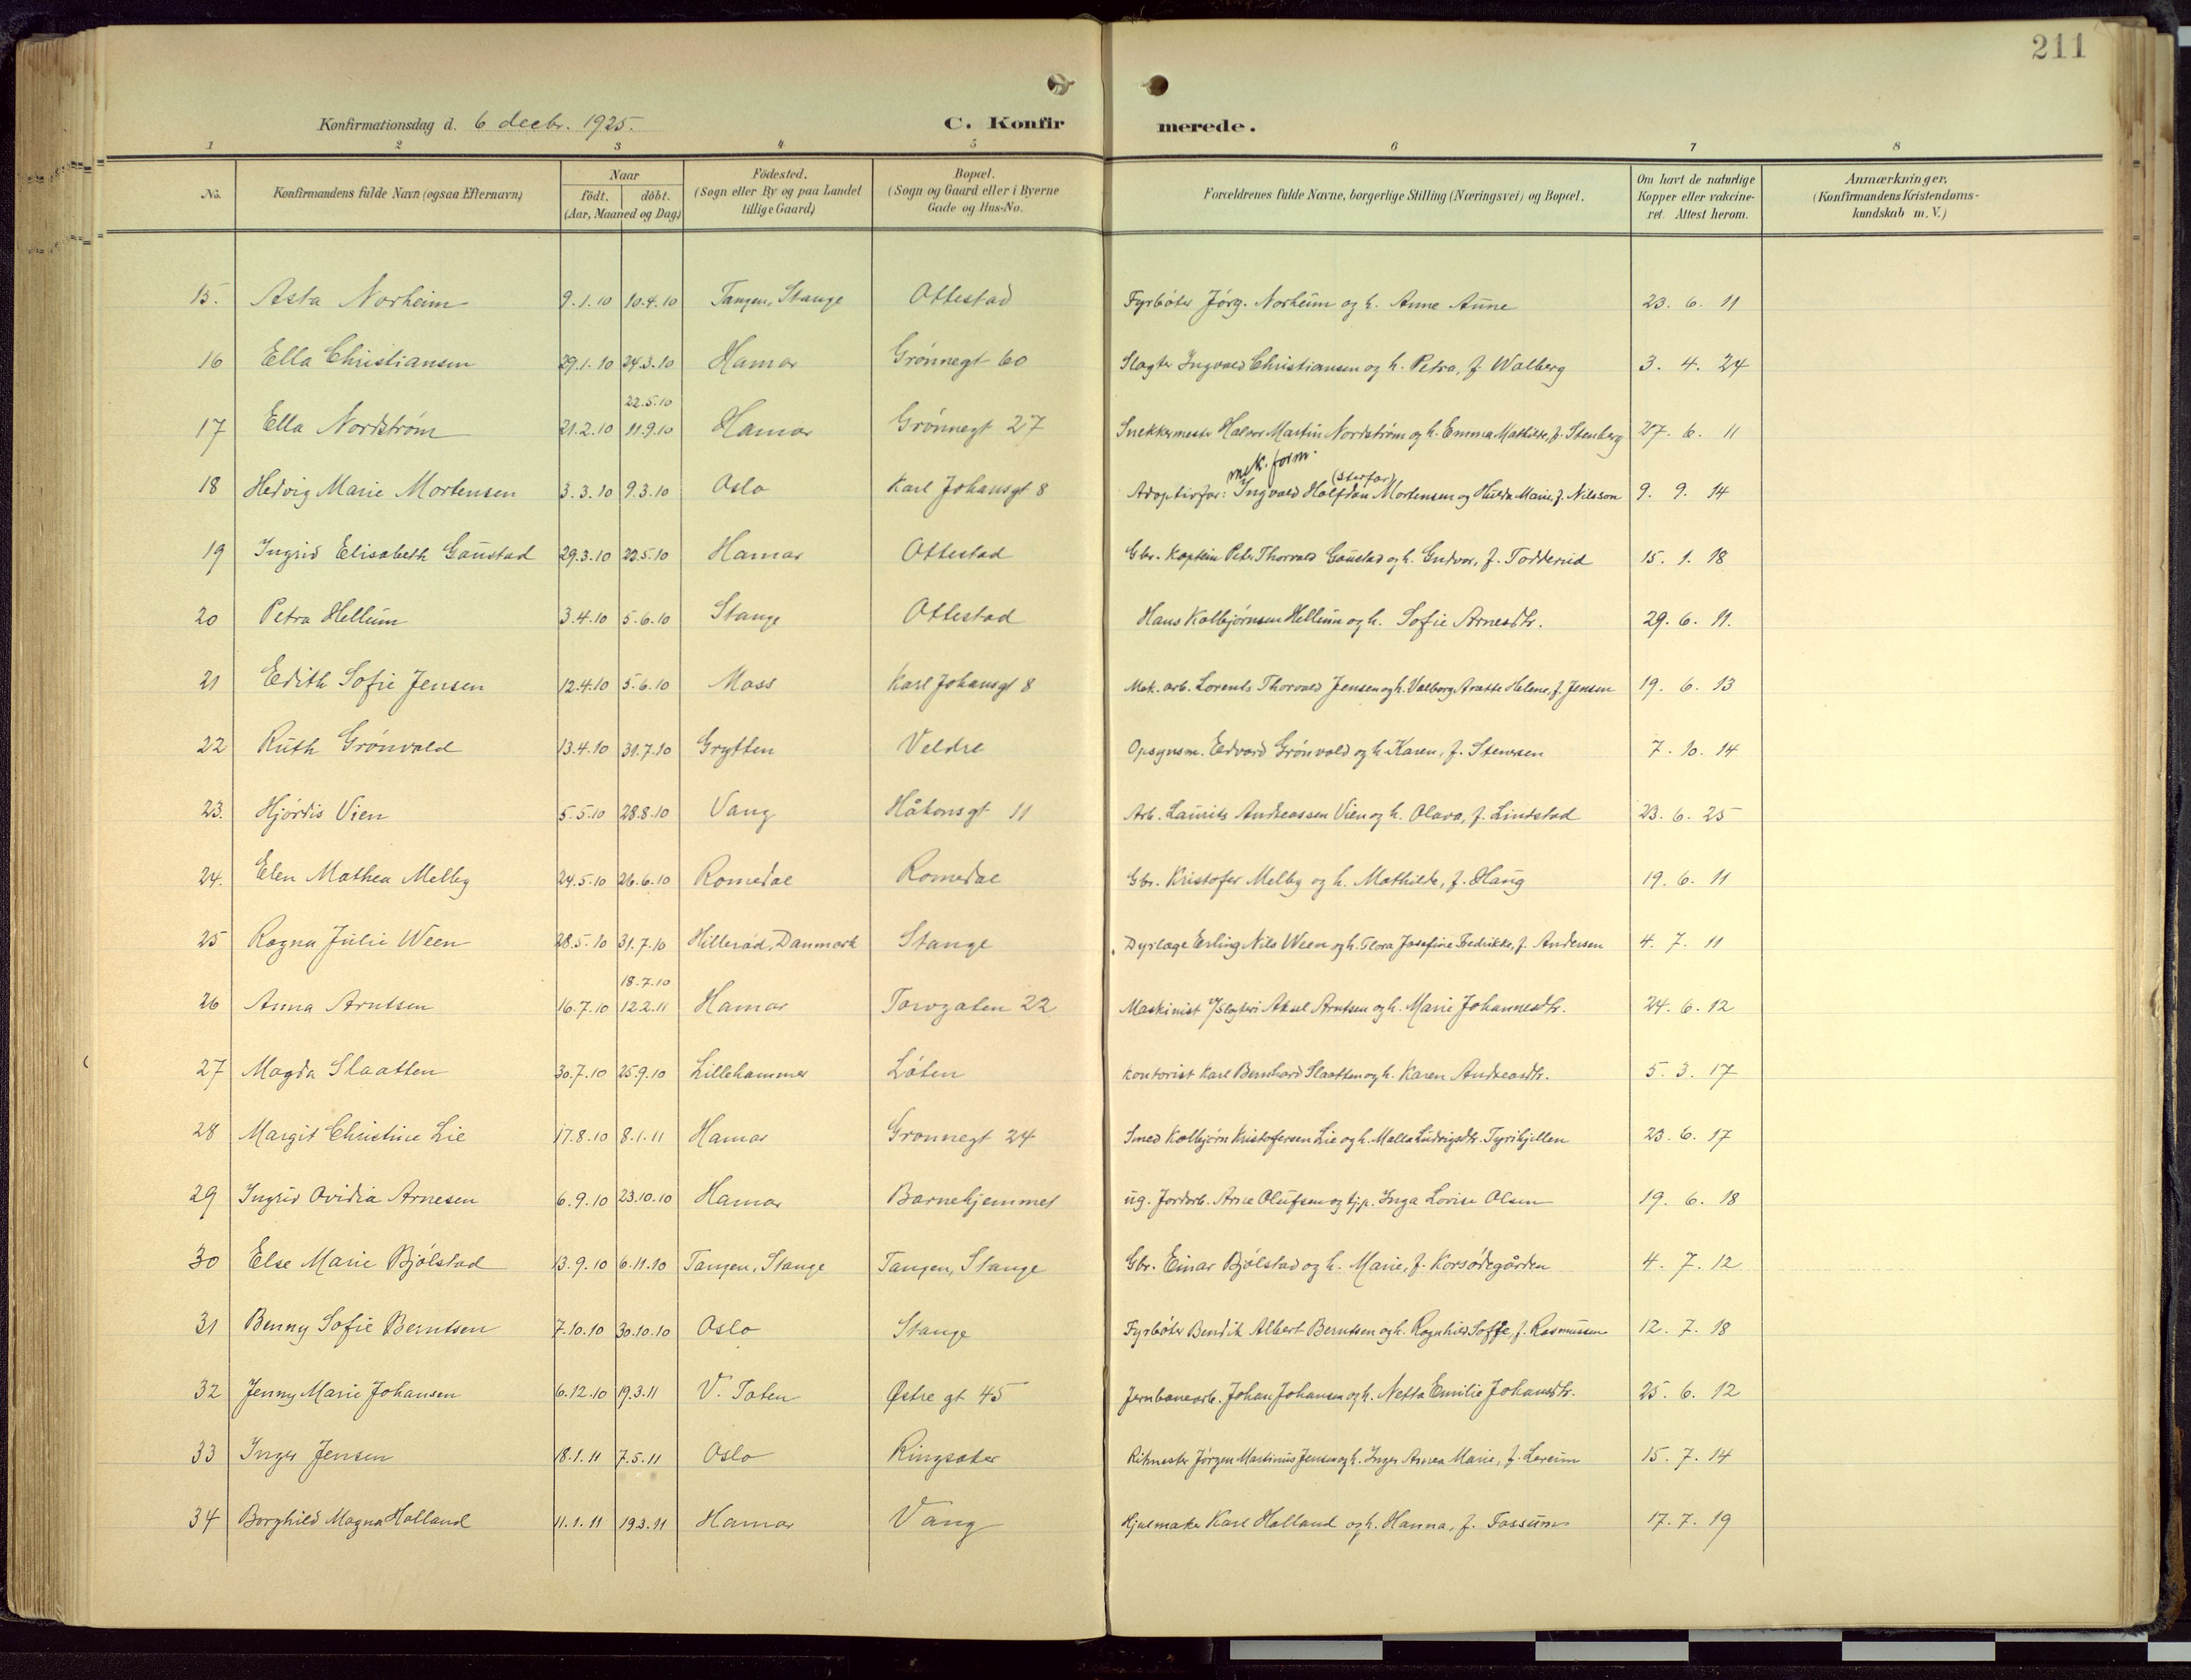 211
Konfirmationsdag d. 6 decbr. 1925. C. Konfirmerede.
1 2 3 4 5 6 7 8
No. Konfirmandens fulde Navn (ogsaa Efternavn) Naar födt. döbt. (Aar, Maaned og Dag) Födested. (Sogn eller By og paa Landet tillige Gaard) Bopæl. (Sogn og Gaard eller i Byerne Gade og Hus-No. Forældrenes fulde Navne, borgerlige Stilling (Næringsvei) og Bopæl. Om havt de naturlige Kopper eller vakcineret. Attest herom. Anmærkninger. (Konfirmandens Kristendomskundskab m. V.)
15. Asta Norheim 9.1.10 10.4.10 Tangen, Stange Ottestad Fyrbøter Jørg. Norheim og h. Anne Aune 23. 6. 11
16 Ella Christiansen 29.1.10 24.3.10 Hamar Grønnegt 60 Slagter Ingvald Christiansen og h. Petra, f. Walberg 3. 4. 24
22.5.10
17 Ella Nordstrøm 21.2.10 11.9.10 Hamar Grønnegt 27 Snekkermester Halvor Martin Nordstrøm og h. Emma Mathilde, f. Stenberg 27. 6. 11
mek. form. (storfar)
18 Hedvig Marie Mortensen 3.3.10 9.3.10 Oslo Karl Johansgt 8 Adoptivfor: Ingvald Halfdan Mortensen og Hulda Marie, f. Nilsson 9. 9. 14
19 Ingrid Elisabeth Gaustad 29.3.10 22.5.10 Hamar Ottestad Gbr. Kaptein Peter Thorvald Gaustad og h. Gudvor, f. Todderud 15. 1. 18
20 Petra Hellum 3.4.10 5.6.10 Stange Ottestad Hans Kolbjørnsen Hellum og h. Sofie Arnesdtr. 29. 6. 11.
21 Edith Sofie Jensen 12.4.10 5.6.10 Moss Karl Johansgt 8 Mek. arb. Lorents Thorvald Jensen og h. Valborg Helene, f. Jensen 19. 6. 13
22 Ruth Grönvold 13.4.10 31.7.10 Grytten Veldre Opsynsm. Edvard Grönvold og h. Karen, f. Stensen 7. 10. 14
23. Hjørdis Vien 5.5.10 28.8.10 Vang Håkonsgt 11 Arb. Laurits Andreassen Vien og h. Olava, f. Lindstad 23. 6. 25
24. Elen Mathea Melby 24.5.10 26.6.10 Romedal Romedal Gbr. Kristofer Melby og h. Mathilde, f. Haug 19. 6. 11
25 Ragna Julie Ween 28.5.10 31.7.10 Hillerød, Danmark Stange Dyrlæge Erling Nils Ween og h. Flora Josefine Fredrikke, f. Andersen 4. 7. 11
18.7.10
26 Anna Arntsen 16.7.10 12.2.11 Hamar Torvgaten 22 Maskinist v/Slagteri Aksel Arntsen og h. Marie Johannesdtr. 24. 6. 12
27 Magda Slaatten 30.7.10 25.9.10 Lillehammer Løten Kontorist Karl Bernhard Slaatten og h. Karen Andreasdtr. 5. 3. 17
28 Margit Christine Lie 17.8.10 8.1.11 Hamar Grønnegt 24 Smed Kolbjørn Kristofersen Lie og h. Malla Ludvigsdtr. Tyrihjellen 23. 6. 17
29 Ingrid Ovidia Arnesen 6.9.10 23.10.10 Hamar Barnehjemmet ug. Jordarb. Arne Olufsen og tjp. Inga Lovise Olsen 19. 6. 18
30 Else Marie Bjölstad 13.9.10 6.11.10 Tangen, Stange Tangen, Stange Gbr. Einar Bjölstad og h. Marie, f. Korsødegården 4. 7. 12
31 Benny Sofie Berntsen 7.10.10 30.10.10 Oslo Stange Fyrbøter Bendik Albert Berntsen og h. Ragnhild Soffe, f. Rasmussen 12. 7. 18
32 Jenny Marie Johansen 6.12.10 19.3.11 V. Toten Østre gt 45 Jernbanearb. Johan Johansen og h. Netta Emilie Johansdtr. 25. 6. 12
33 Inger Jensen 18.1.11 7.5.11 Oslo Ringsaker Ritmester Jørgen Martinus Jensen og h. Inger Annea Marie, f. Lereim 15. 7. 14
34 Borghild Magna Holland 11.1.11 19.3.11 Hamar Vang Hjulmaker Karl Holland og h. Hanna, f. Fossum 17. 7. 19